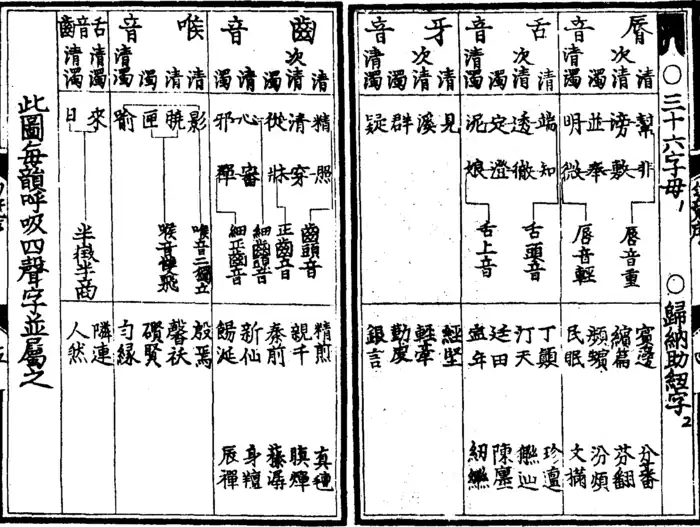 ○三十六字母1
○歸納助紐字2
脣音
清 次清 濁 清濁
幫 滂 並 明
非 敷 奉 微
脣音重
脣音輕
賓邊 繽篇 頻蠙 民眠
分番 芬翻 汾煩 文樠
舌音
清 次清 濁 清濁
端 透 定 泥
知 徹 澄 娘
舌頭音
舌上音
丁顛 汀天 廷田
珍邅 陳廛
牙音
清 次清 濁 清濁
見 溪 群 疑
經堅 輕牽 勤虔 銀言
齒音
清 次清 濁 清 濁
精 清 從 心 邪
照 穿 牀 審 禪
齒頭音
正齒音
細齒頭音
細正齒音
精煎 親千 秦前 新仙 餳涎
真氈 瞋燀 榛潺 身羶 辰禪
喉音
清 清 濁 清濁
影 曉 匣 喻
喉音二獨立
喉音雙飛
殷焉 馨祆 礥賢 勻緣
舌齒音
清濁 清濁
來 日
半徵半商
隣連 人然
此圖每韻呼吸四聲字並屬之